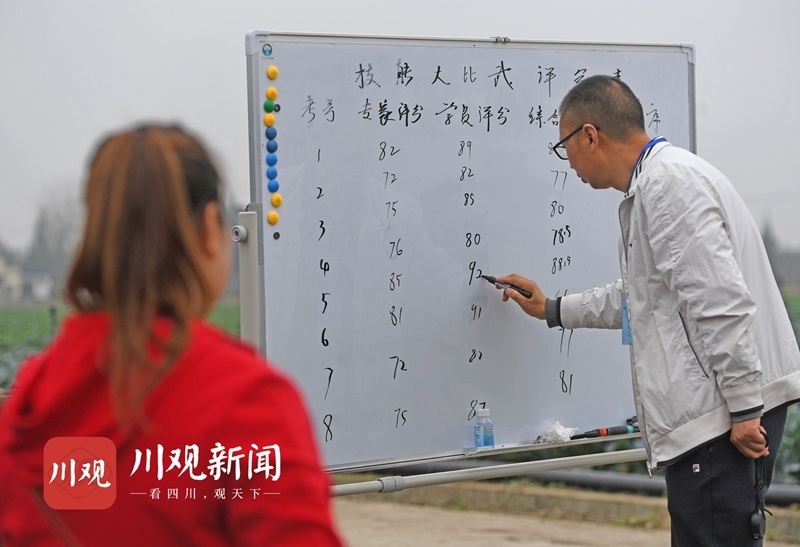 技能大比武 评分
考号 专家评分 学员评分 综合 序
1 82 89
2 72 82 77
3 75 85 80
4 76 80 78.5
5 85 92 88.5
6 81 91
7 72 82 77
8 75 87 81
川观 川观新闻
看四川，观天下